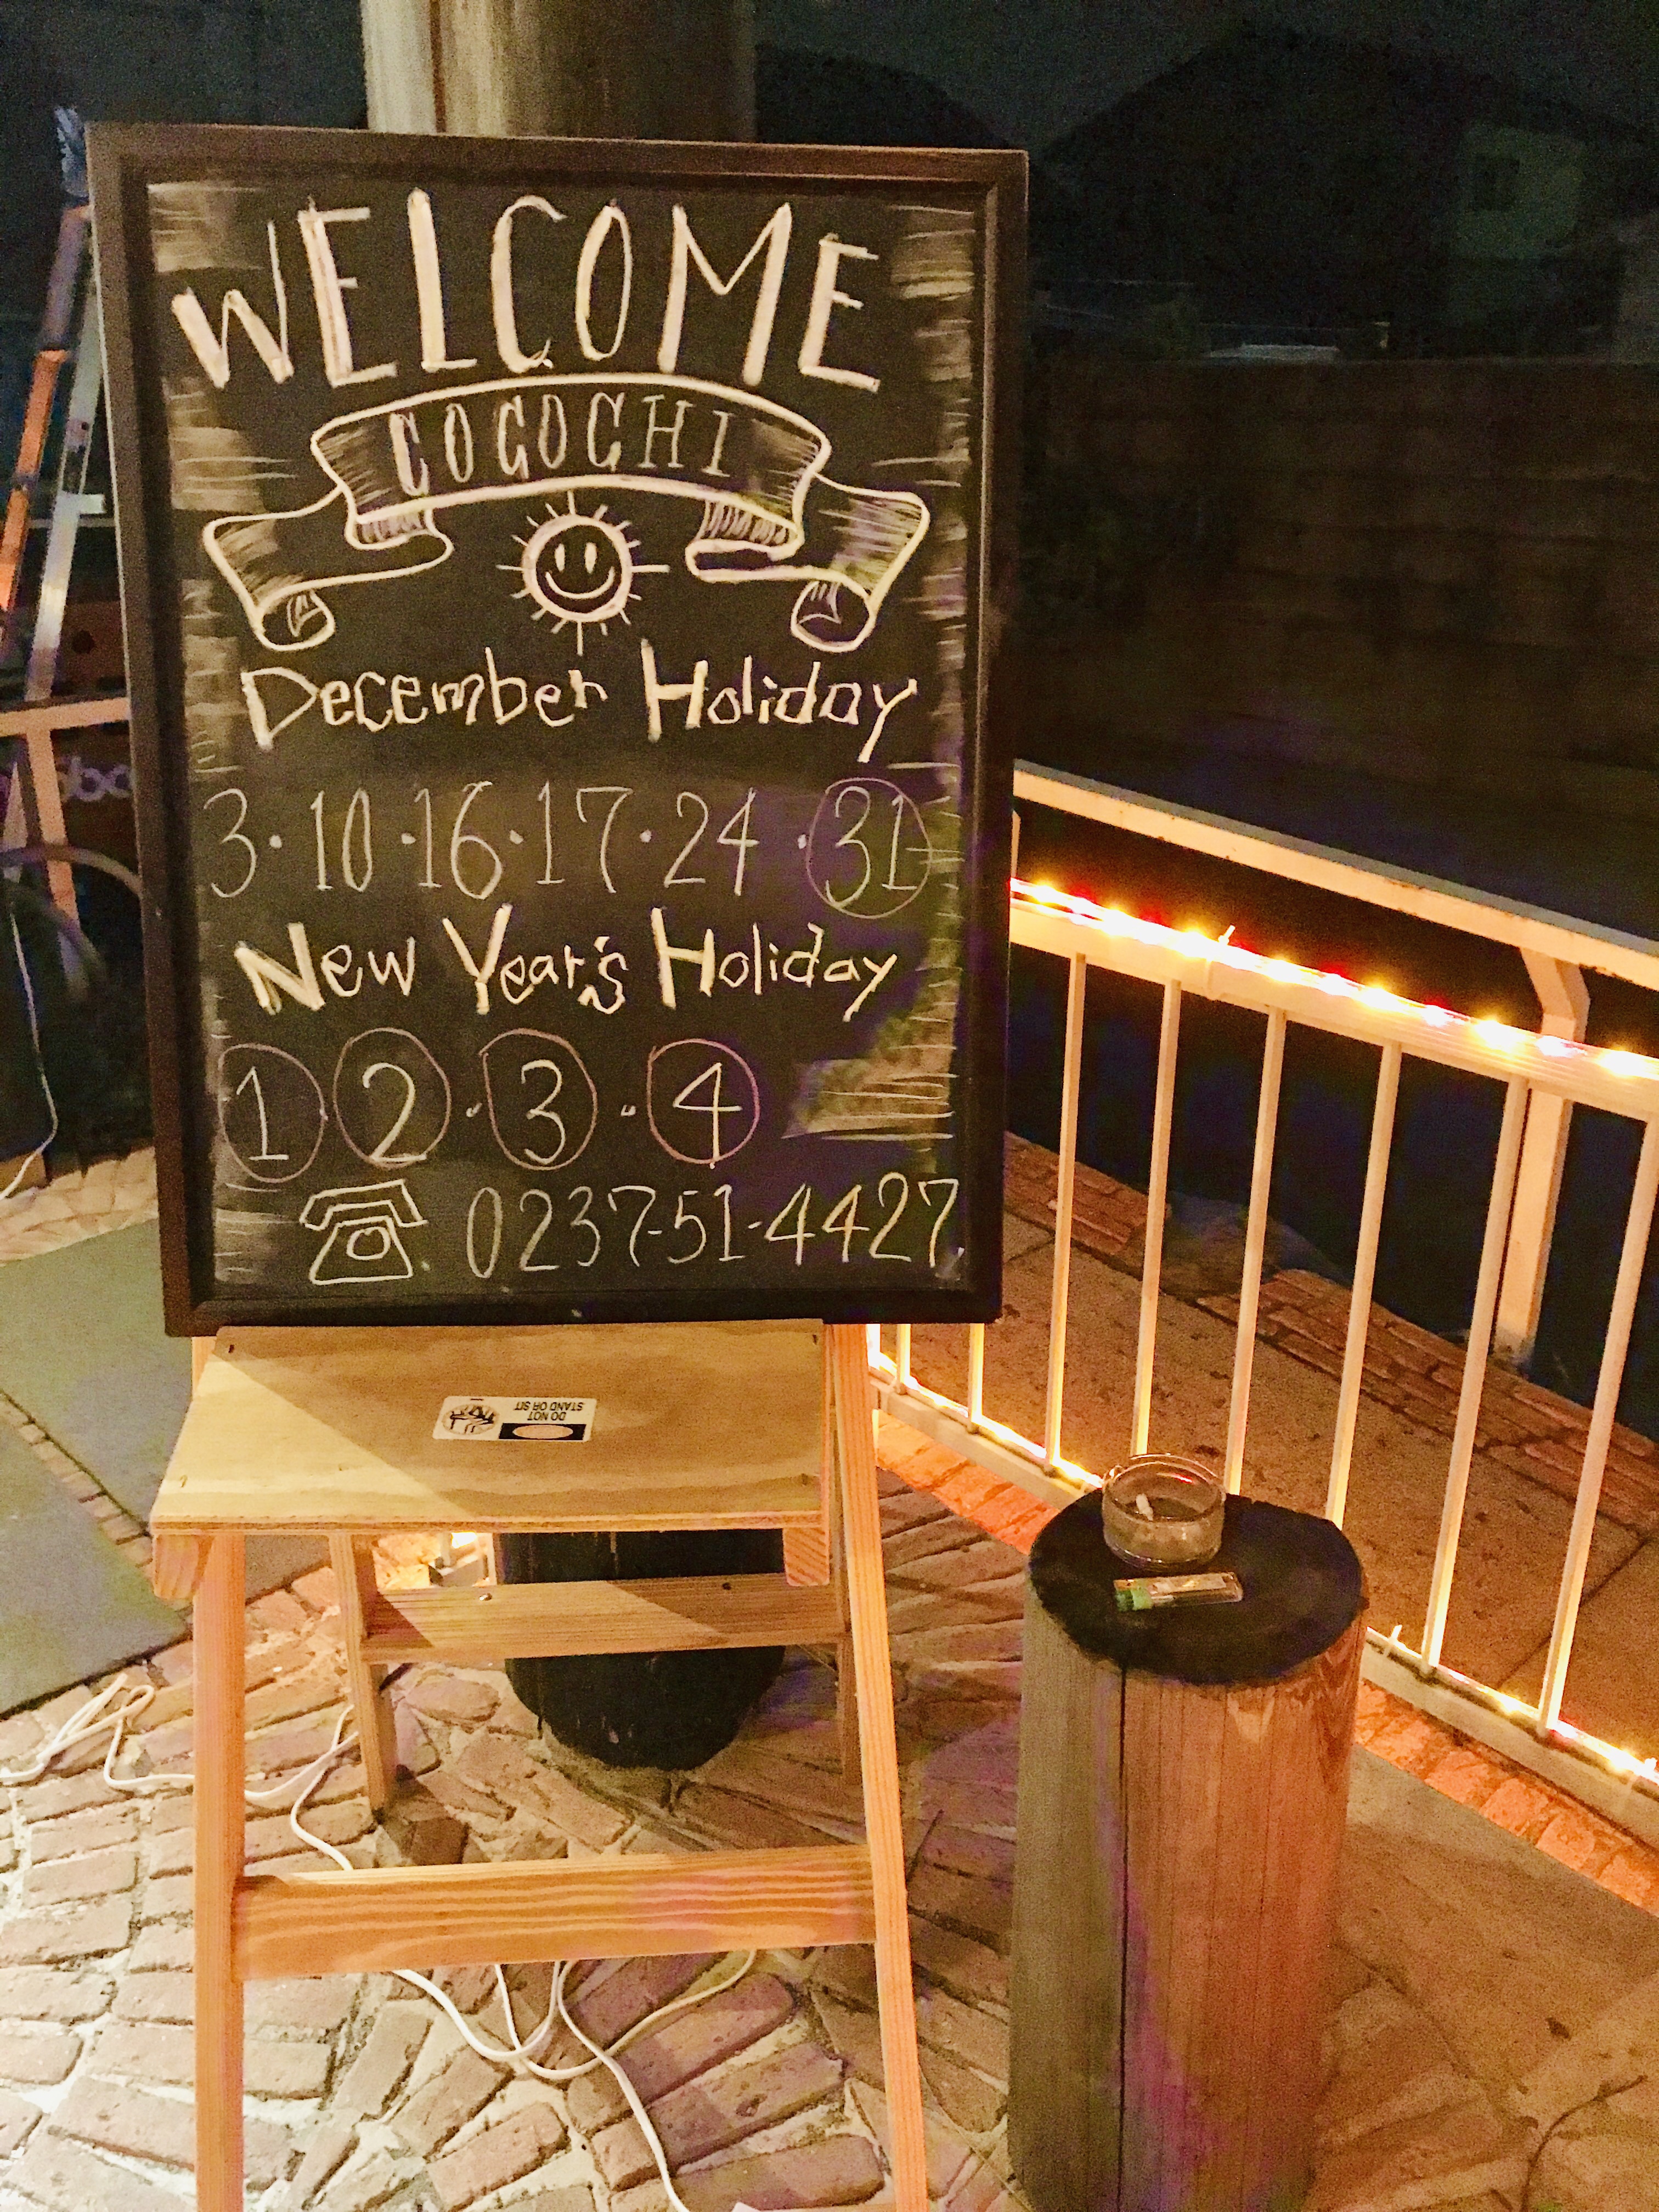 WELCOME
COCOCHI
December Holiday
3・10・16・17・24・31
New Year's Holiday
1・2・3・4
☎. 0237-51-4427.
DO NOT
STAND OR SIT